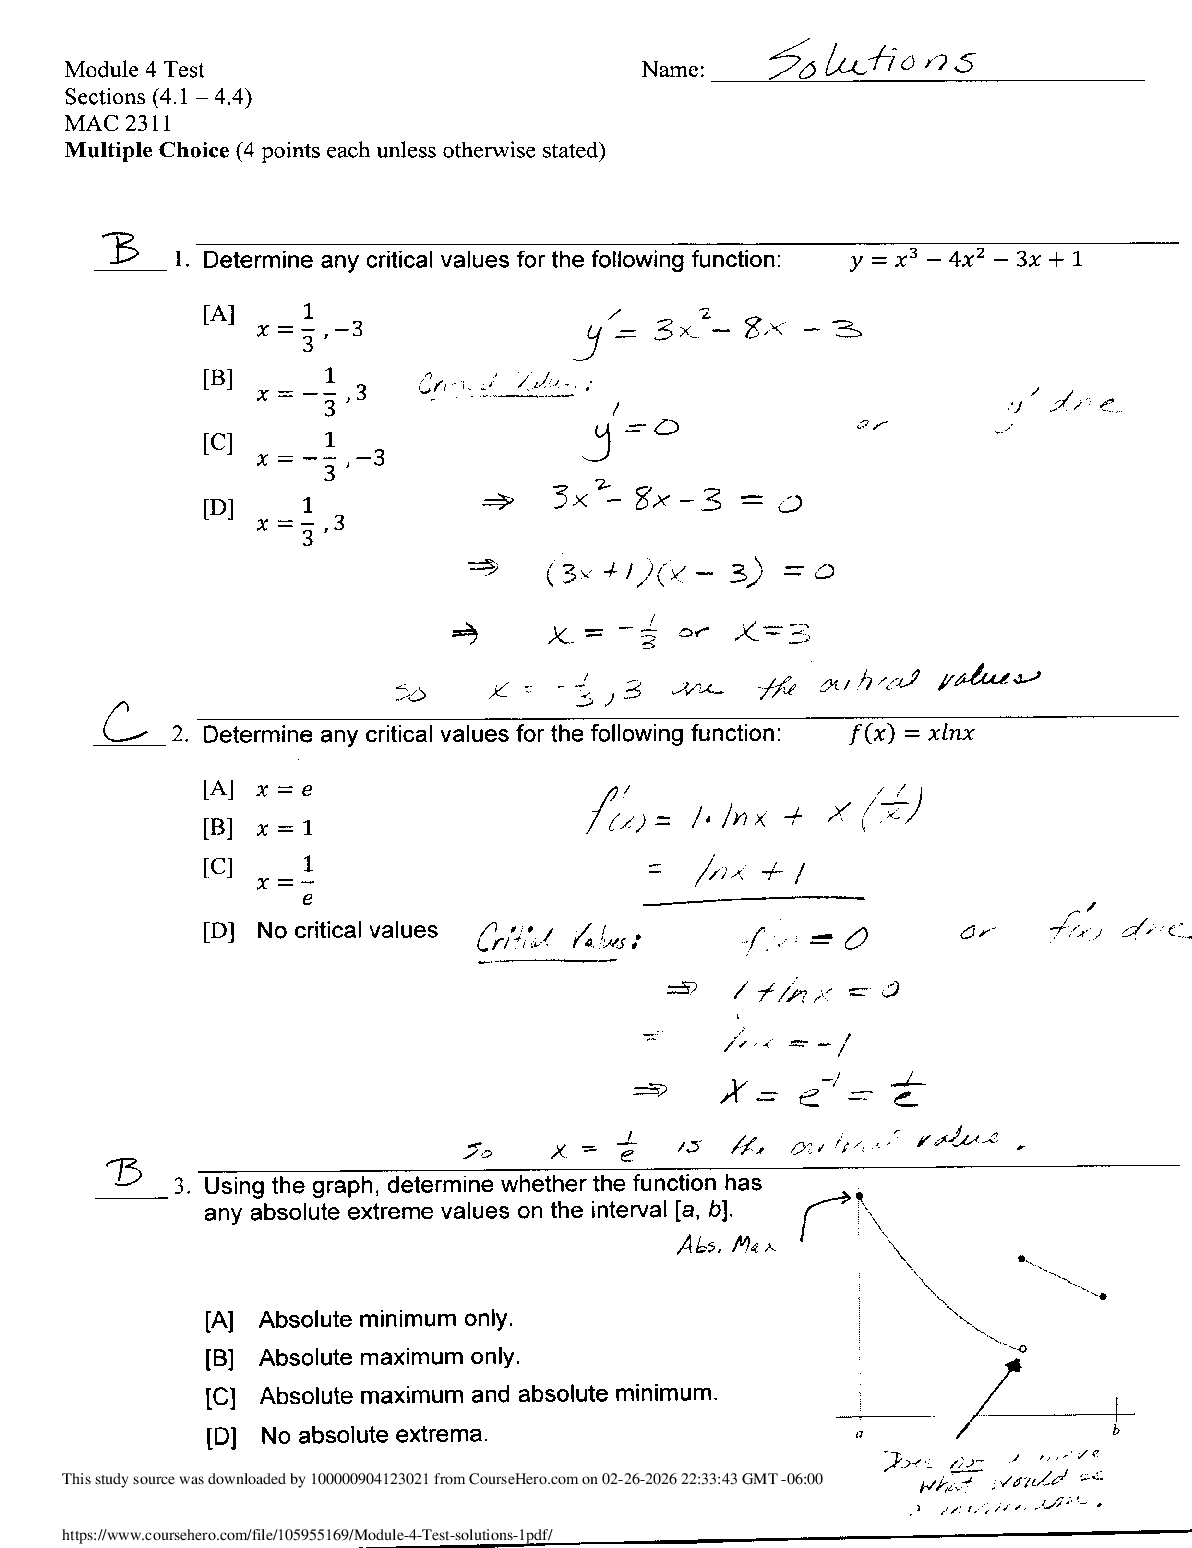 Module 4 Test
Name: Solutions
Sections (4.1 – 4.4)
MAC 2311
Multiple Choice (4 points each unless otherwise stated)
B 1. Determine any critical values for the following function: y = x³ − 4x² − 3x + 1
[A] x = 1/3, −3
y' = 3x² − 8x − 3
[B] x = −1/3, 3
Critical Values:
y' = 0 or y' dne
[C] x = −1/3, −3
⇒ 3x² − 8x − 3 = 0
[D] x = 1/3, 3
⇒ (3x+1)(x − 3) = 0
⇒ x = −1/3 or x = 3
so x = −1/3, 3 are the critical values
C 2. Determine any critical values for the following function: f(x) = xlnx
[A] x = e
f'(x) = 1·lnx + x(1/x)
[B] x = 1
[C] x = 1/e
= lnx + 1
[D] No critical values
Critical Values: f'(x) = 0 or f'(x) dne
⇒ 1 + lnx = 0
= lnx = −1
⇒ x = e⁻¹ = 1/e
So x = 1/e is the critical value.
B 3. Using the graph, determine whether the function has
any absolute extreme values on the interval [a, b].
Abs. Max
[A] Absolute minimum only.
[B] Absolute maximum only.
[C] Absolute maximum and absolute minimum.
[D] No absolute extrema.
a b
Does
what would be
This study source was downloaded by 100000904123021 from CourseHero.com on 02-26-2026 22:33:43 GMT -06:00
https://www.coursehero.com/file/105955169/Module-4-Test-solutions-1pdf/